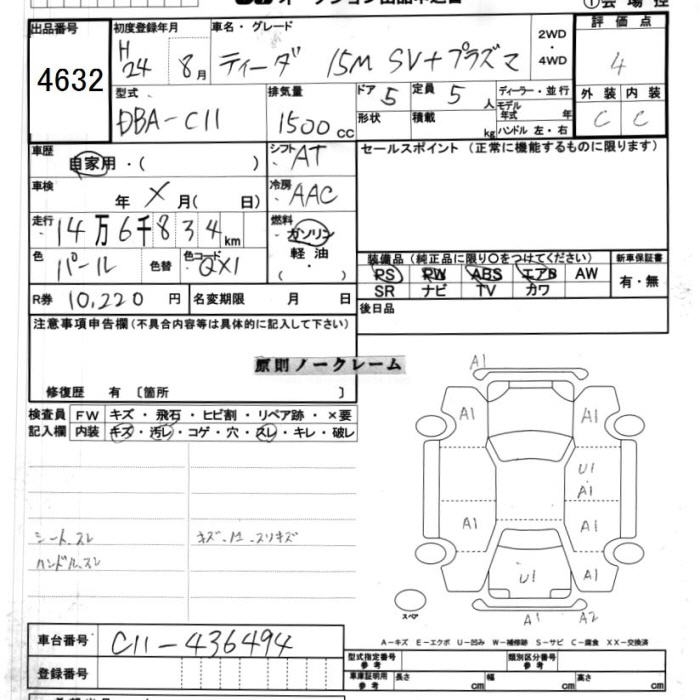 オークション出品申込書 ①会場控
出品番号 初度登録年月 車名・グレード 2WD・4WD 評価点
4632 H24 8月 ティーダ 15M SV+プラズマ 4
型式 排気量 ドア 定員 ディーラー・並行 外装 内装
DBA-C11 1500cc 5 5人 モデル年式 年 C C
形状 積載 kg ハンドル 左・右
車歴 自家用・( ) シフト AT セールスポイント(正常に機能するものに限ります)
車検 年 X 月( 日) 冷房 AAC
走行 14万6千834km 燃料 ガソリン
色 パール 色替 色コード QX1 軽油 装備品(純正品に限り○をつけてください) 新車保証書
・( ) PS PW ABS エアB AW 有・無
R券 10,220円 名変期限 月 日 SR ナビ TV カワ
注意事項申告欄(不具合内容等は具体的に記入して下さい) 後日品
原則ノークレーム
修復歴 有 〔箇所 〕
検査員 FW キズ・飛石・ヒビ割・リペア跡・×要
記入欄 内装 キズ・汚レ・コゲ・穴・スレ・キレ・破レ
A1
A1 A1
U1
A1
A1 A1
U1 A1
A1 A2
シートスレ
ハンドルスレ
スペア
A-キズ E-エクボ U-凹み W-補修跡 S-サビ C-腐食 XX-交換済
車台番号 C11-436494
型式指定番号 参考 類別区分番号 参考
登録番号 車庫証明用 参考 長さ cm 幅 cm 高さ cm